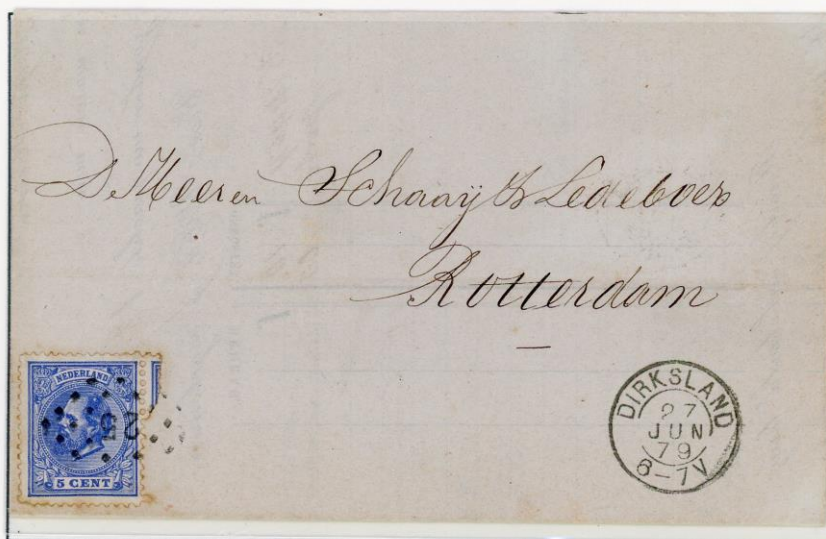 De Heeren Schaay & Ledeboer
Rotterdam
NEDERLAND
25
5 CENT
DIRKSLAND
27
JUN
79
6-7V